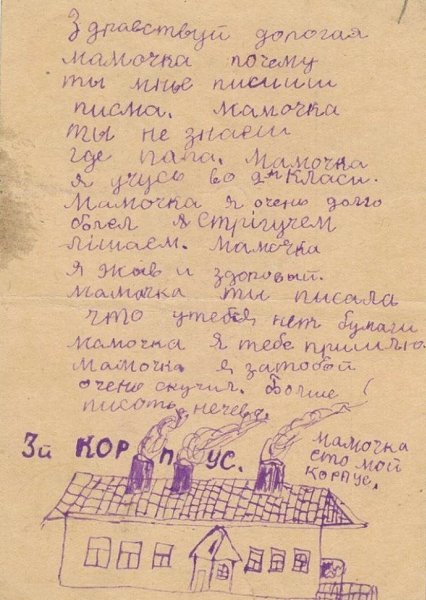 Здравствуй дорогая
мамочка почему
ты мнье пишиш
писма. Мамочка
ты не знаеш
где папа. Мамочка
я учусь во 2м Класи.
Мамочка я очень долго
болел я Стрігучем
лішаем. Мамочка
я жыв и здоровый.
мамочка ты писала
что утебя нет бумаги
мамочка я тебе пришлю.
мамочка я затобой
очень скучил. Болше
писать нечево!
3й КОРПУС.
мамочка
єто мой
корпус.